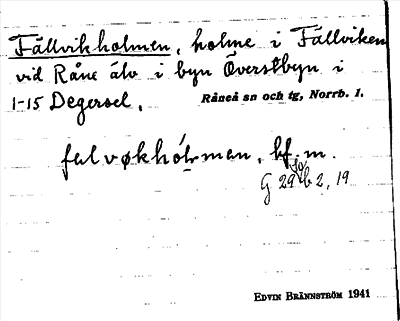 Fällvikholmen, holme i Fällviken
vid Råne älv i byn Överstbyn i
1-15 Degersel. Råneå sn och tg, Norrb. l.
falvøkhólman, bf. m.
G 29 b 2, 19
EDVIN BRÄNNSTRÖM 1941